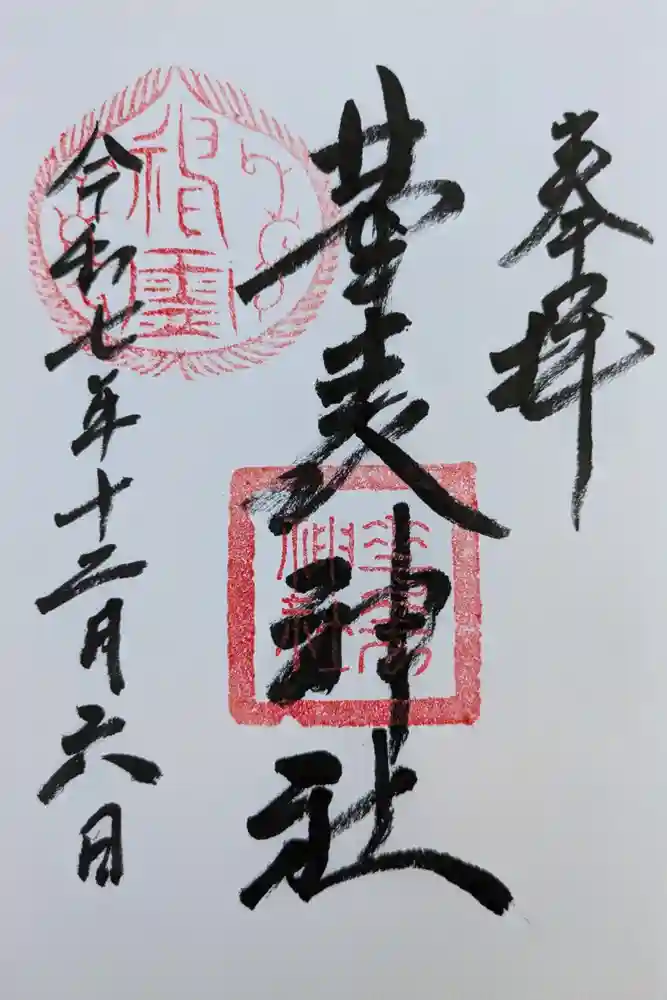 奉拝
華表神社
令和七年十二月六日